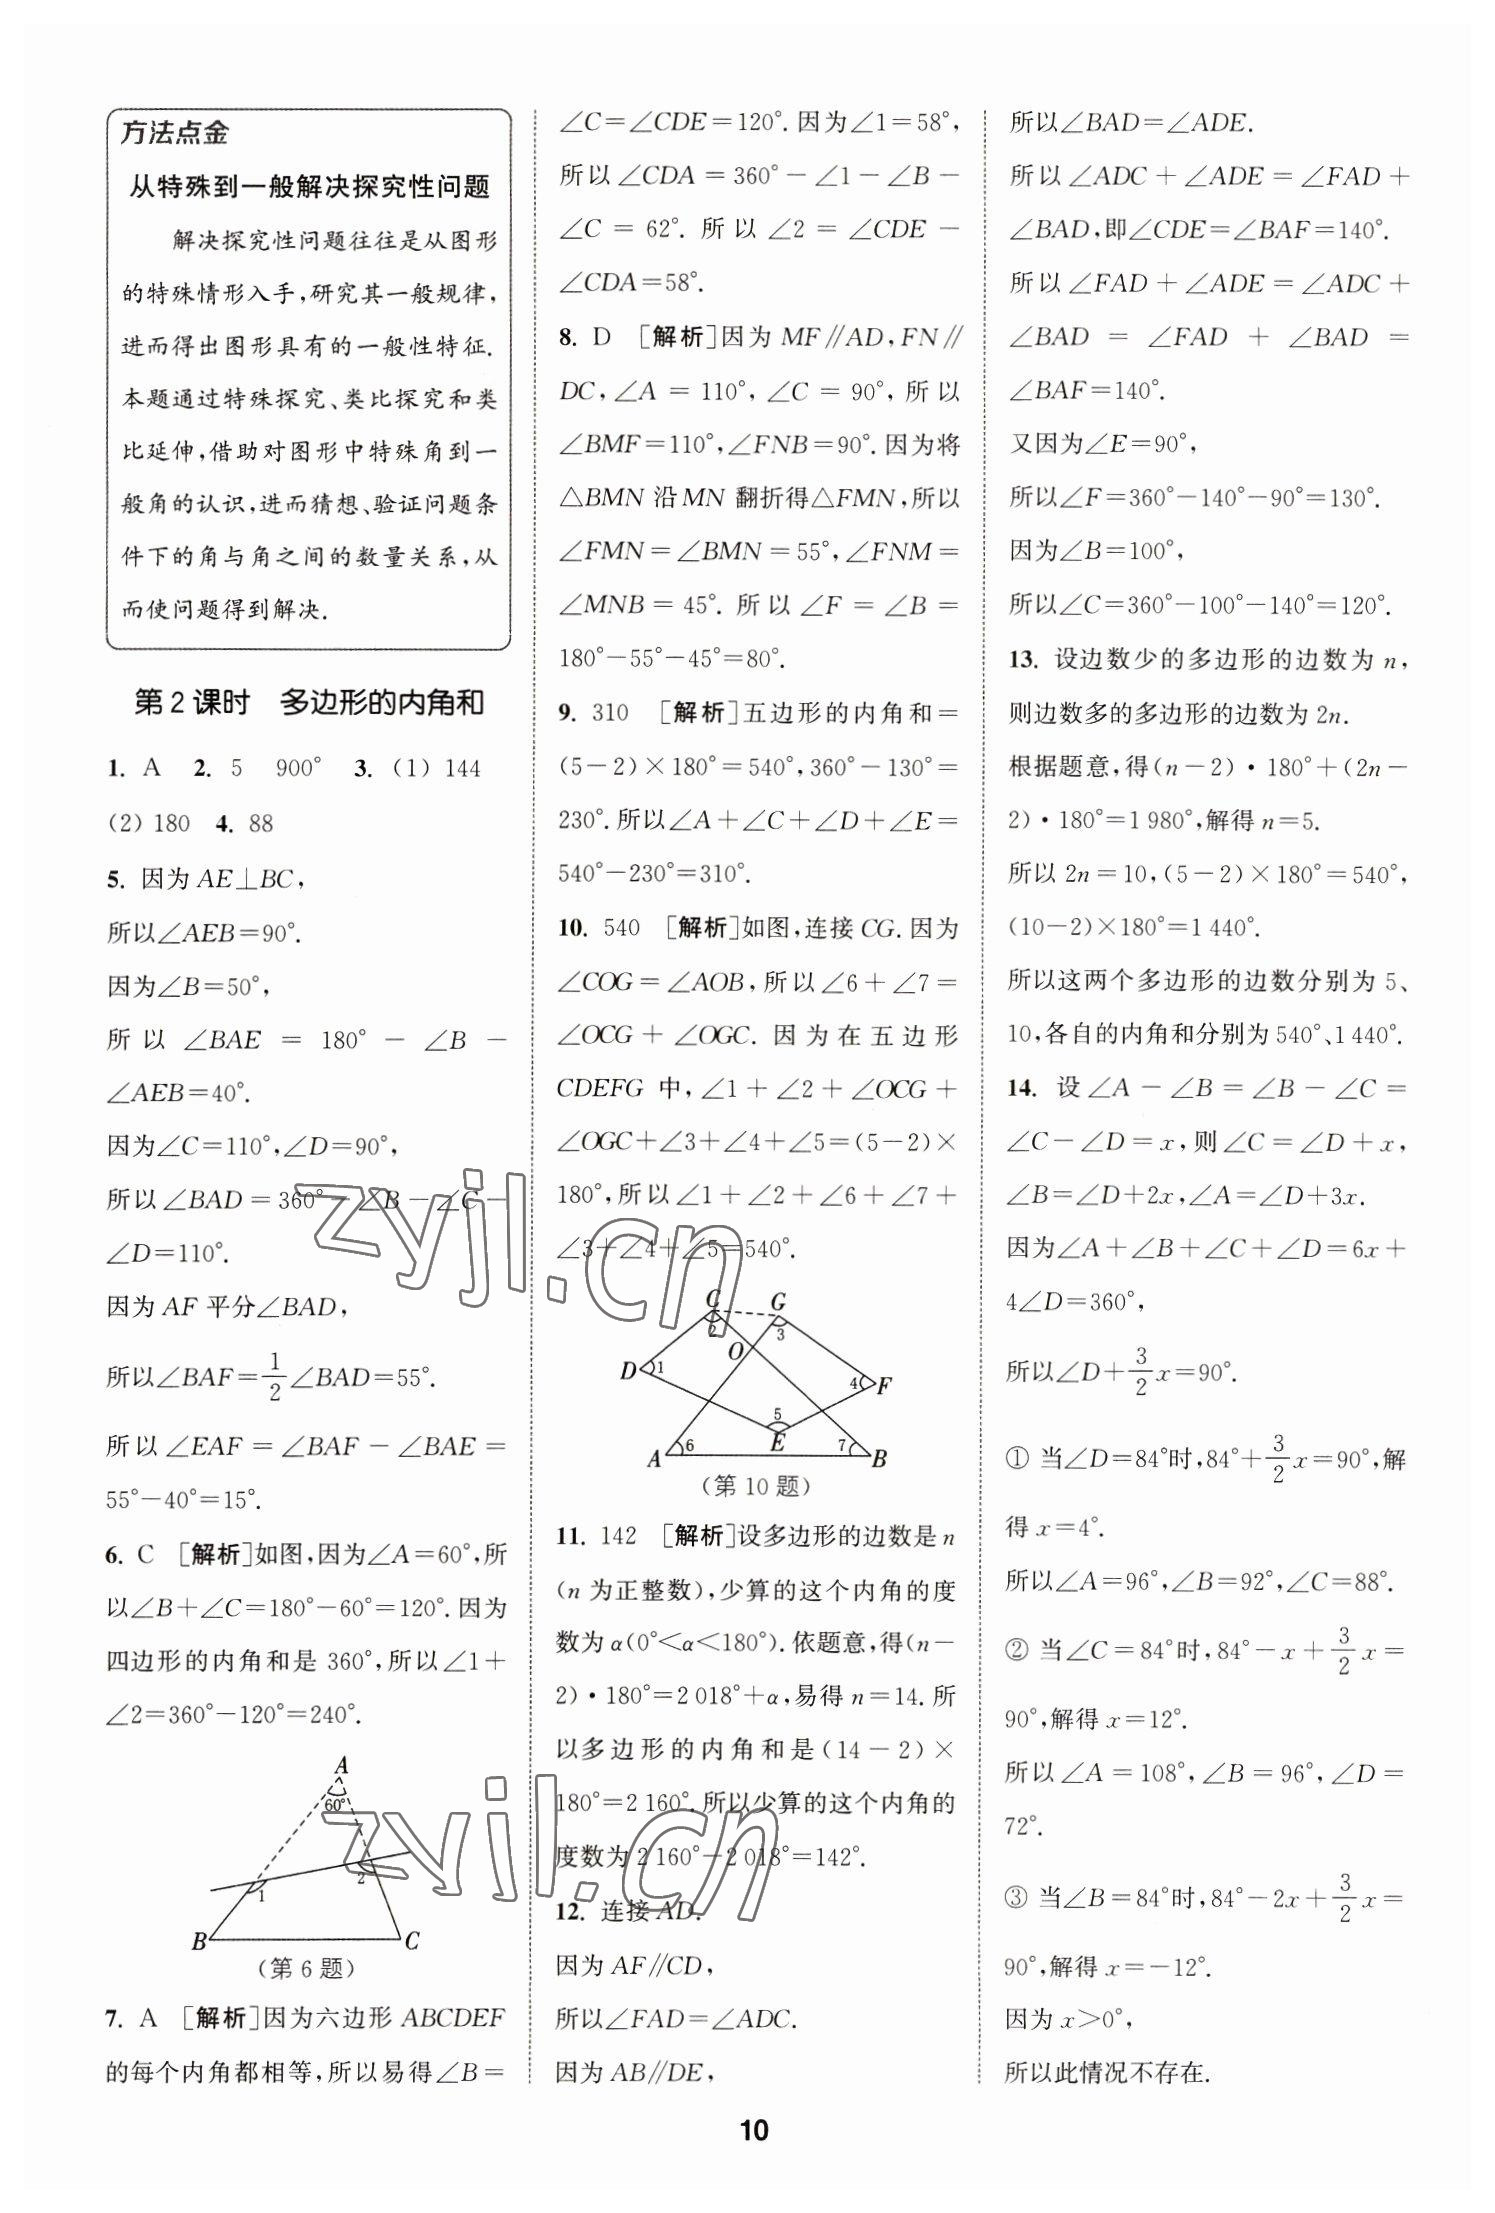 方法点金
从特殊到一般解决探究性问题
解决探究性问题往往是从图形
的特殊情形入手,研究其一般规律,
进而得出图形具有的一般性特征.
本题通过特殊探究、类比探究和类
比延伸,借助对图形中特殊角到一
般角的认识,进而猜想、验证问题条
件下的角与角之间的数量关系,从
而使问题得到解决.
第2课时 多边形的内角和
1. A 2. 5 900° 3. (1) 144
(2) 180 4. 88
5. 因为AE⊥BC,
所以∠AEB=90°.
因为∠B=50°,
所以∠BAE=180°-∠B-
∠AEB=40°.
因为∠C=110°,∠D=90°,
所以∠BAD=360°-∠B-∠C-
∠D=110°.
因为AF平分∠BAD,
所以∠BAF=1/2∠BAD=55°.
所以∠EAF=∠BAF-∠BAE=
55°-40°=15°.
6. C [解析]如图,因为∠A=60°,所
以∠B+∠C=180°-60°=120°.因为
四边形的内角和是360°,所以∠1+
∠2=360°-120°=240°.
A
60°
1
2
B
C
(第6题)
7. A [解析]因为六边形ABCDEF
的每个内角都相等,所以易得∠B=
∠C=∠CDE=120°.因为∠1=58°,
所以∠CDA=360°-∠1-∠B-
∠C=62°.所以∠2=∠CDE-
∠CDA=58°.
8. D [解析]因为MF∥AD,FN∥
DC,∠A=110°,∠C=90°,所以
∠BMF=110°,∠FNB=90°.因为将
△BMN沿MN翻折得△FMN,所以
∠FMN=∠BMN=55°,∠FNM=
∠MNB=45°.所以∠F=∠B=
180°-55°-45°=80°.
9. 310 [解析]五边形的内角和=
(5-2)×180°=540°,360°-130°=
230°.所以∠A+∠C+∠D+∠E=
540°-230°=310°.
10. 540 [解析]如图,连接CG.因为
∠COG=∠AOB,所以∠6+∠7=
∠OCG+∠OGC.因为在五边形
CDEFG中,∠1+∠2+∠OCG+
∠OGC+∠3+∠4+∠5=(5-2)×
180°,所以∠1+∠2+∠6+∠7+
∠3+∠4+∠5=540°.
C
G
2
3
O
D
1
4
F
5
E
A
6
7
B
(第10题)
11. 142 [解析]设多边形的边数是n
(n为正整数),少算的这个内角的度
数为α(0°<α<180°).依题意,得(n-
2)·180°=2 018°+α,易得n=14.所
以多边形的内角和是(14-2)×
180°=2 160°.所以少算的这个内角的
度数为2 160°-2 018°=142°.
12. 连接AD.
因为AF∥CD,
所以∠FAD=∠ADC.
因为AB∥DE,
所以∠BAD=∠ADE.
所以∠ADC+∠ADE=∠FAD+
∠BAD,即∠CDE=∠BAF=140°.
所以∠FAD+∠ADE=∠ADC+
∠BAD=∠FAD+∠BAD=
∠BAF=140°.
又因为∠E=90°,
所以∠F=360°-140°-90°=130°.
因为∠B=100°,
所以∠C=360°-100°-140°=120°.
13. 设边数少的多边形的边数为n,
则边数多的多边形的边数为2n.
根据题意,得(n-2)·180°+(2n-
2)·180°=1 980°,解得n=5.
所以2n=10,(5-2)×180°=540°,
(10-2)×180°=1 440°.
所以这两个多边形的边数分别为5、
10,各自的内角和分别为540°、1 440°.
14. 设∠A-∠B=∠B-∠C=
∠C-∠D=x,则∠C=∠D+x,
∠B=∠D+2x,∠A=∠D+3x.
因为∠A+∠B+∠C+∠D=6x+
4∠D=360°,
所以∠D+3/2x=90°.
① 当∠D=84°时,84°+3/2x=90°,解
得x=4°.
所以∠A=96°,∠B=92°,∠C=88°.
② 当∠C=84°时,84°-x+3/2x=
90°,解得x=12°.
所以∠A=108°,∠B=96°,∠D=
72°.
③ 当∠B=84°时,84°-2x+3/2x=
90°,解得x=-12°.
因为x>0°,
所以此情况不存在.
10
zyjl.cn
zyjl.cn